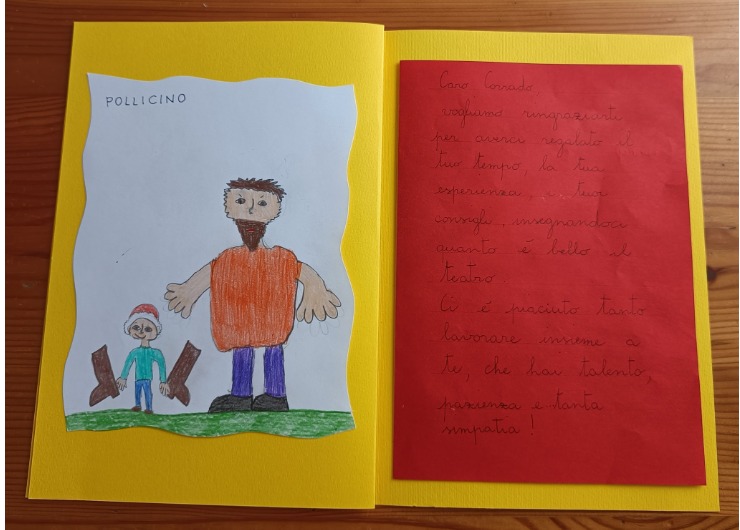 POLLICINO
Caro Corrado,
vogliamo ringraziarti
per averci regalato il
tuo tempo, la tua
esperienza, i tuoi
consigli, insegnandoci
quanto è bello il
teatro.
Ci è piaciuto tanto
lavorare insieme a
te, che hai talento,
pazienza e tanta
simpatia!